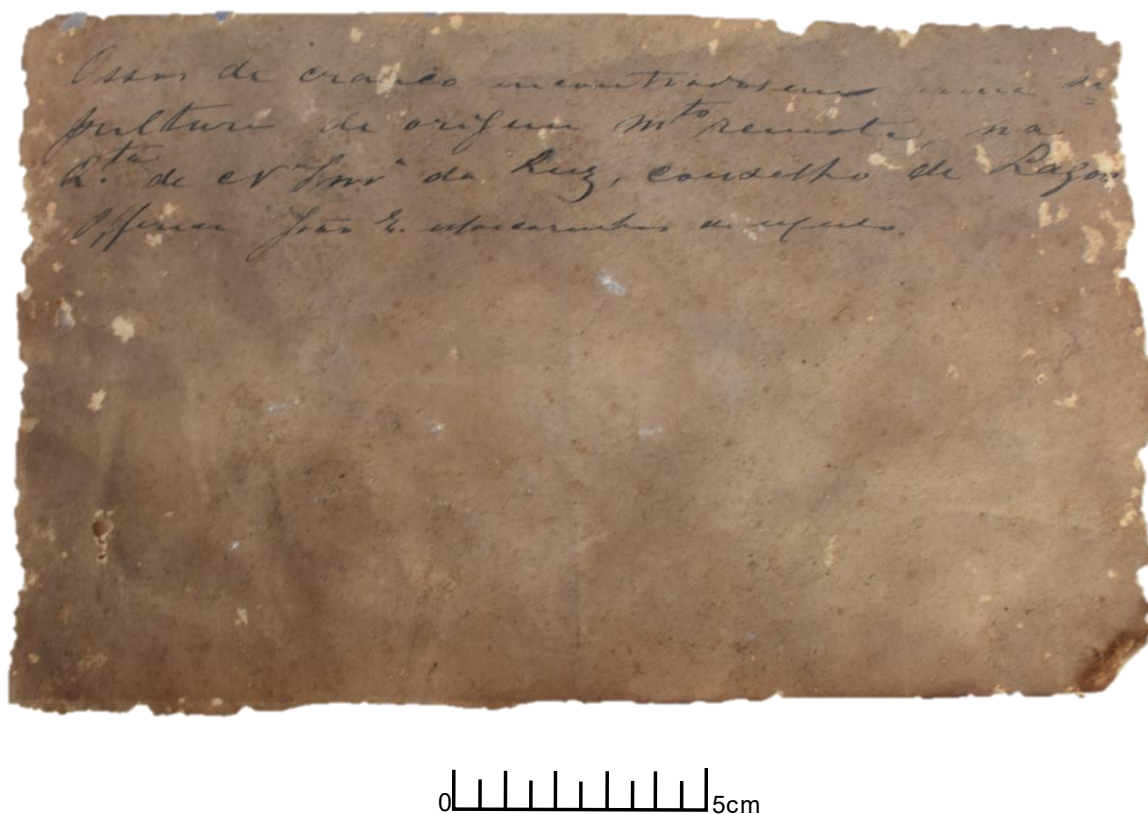 Ossos de craneo encontrados em uma se=
pultura de origem mto remota, na
Q.ta de N.a Snr.a da Luz, conselho de Lagos
Offerece João E. Mascarenhas de Mello.
0 5cm